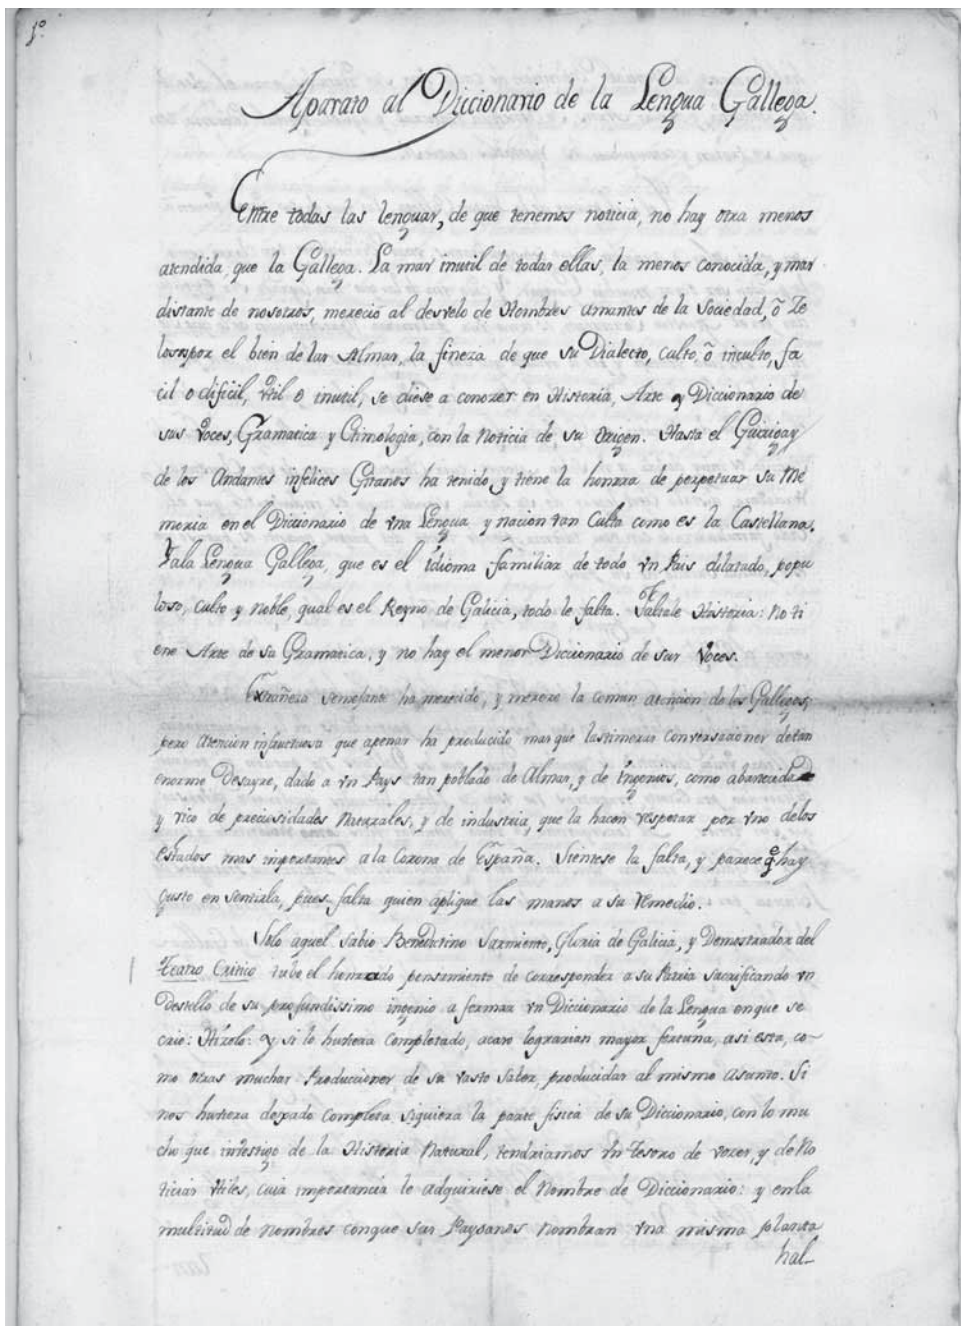 1º
Aparato al Diccionario de la Lengua Gallega.
Entre todas las lenguas, de que tenemos noticia, no hay otra menos
atendida, que la Gallega. La mas inutil de todas ellas, la menos conocida, y mas
distante de nosotros, mereció al desvelo de Hombres amantes de la Sociedad, ō Ze
losos por el bien de las Almas, la fineza de que su Dialecto, culto, ō inculto, fa
cil o dificil, útil o inutil, se diese a conozer en Historia, Arte y Diccionario de
sus Voces, Gramatica y Etimologia, con la Noticia de su Origen. Hasta el Guirigay
de los Andantes infelices Gitanos ha tenido, y tiene la honrra de perpetuar su Me
moria en el Diccionario de vna Lengua y nacion tan Culta como es la Castellana.
Y a la Lengua Gallega, que es el idioma familiar de todo vn Pais dilatado, popu
loso, culto y noble, qual es el Reyno de Galicia, todo le falta. Faltale Historia: No ti
ene Arte de su Gramatica, y no hay el menor Diccionario de sus Voces.
Extrañeza semejante ha merecido, y mereze la comun atencion de los Gallegos;
pero Atencion infructuosa que apenas ha producido mas que lastimosas conversaciones de tan
enorme Desayre, dado a vn Pays tan poblado de Almas, y de Ingenios, como abastecido
y rico de preciosidades Naturales, y de industria, que la hacen respetar por vno de los
estados mas importantes a la Corona de España. Sientese la falta, y parece q.e hay
gusto en sentirla, pues falta quien aplique las manos a su remedio.
Solo aquel Sabio Benedictino Sarmiento, Gloria de Galicia, y Demostrador del
Teatro Critico tubo el honrrado pensamiento de corresponder a su Patria sacrificando vn
Destello de su profundissimo ingenio a formar vn Diccionario de la Lengua en que se
crio: Hizolo: y si lo huviera completado, acaso lograrian mayor fortuna, asi esta, co-
mo otras muchas Producciones de su vasto saber, producidas al mismo Asunto. Si
nos huviera dexado completa siquiera la parte fisica de su Diccionario, con lo mu
cho que inbestigo de la Historia Natural, tendriamos vn Tesoro de vozes, y de No
ticias vtiles, cuia importancia le adquiriese el Nombre de Diccionario: y en la
multitud de Nombres con que sus Paysanos Nombran vna misma planta
hal-